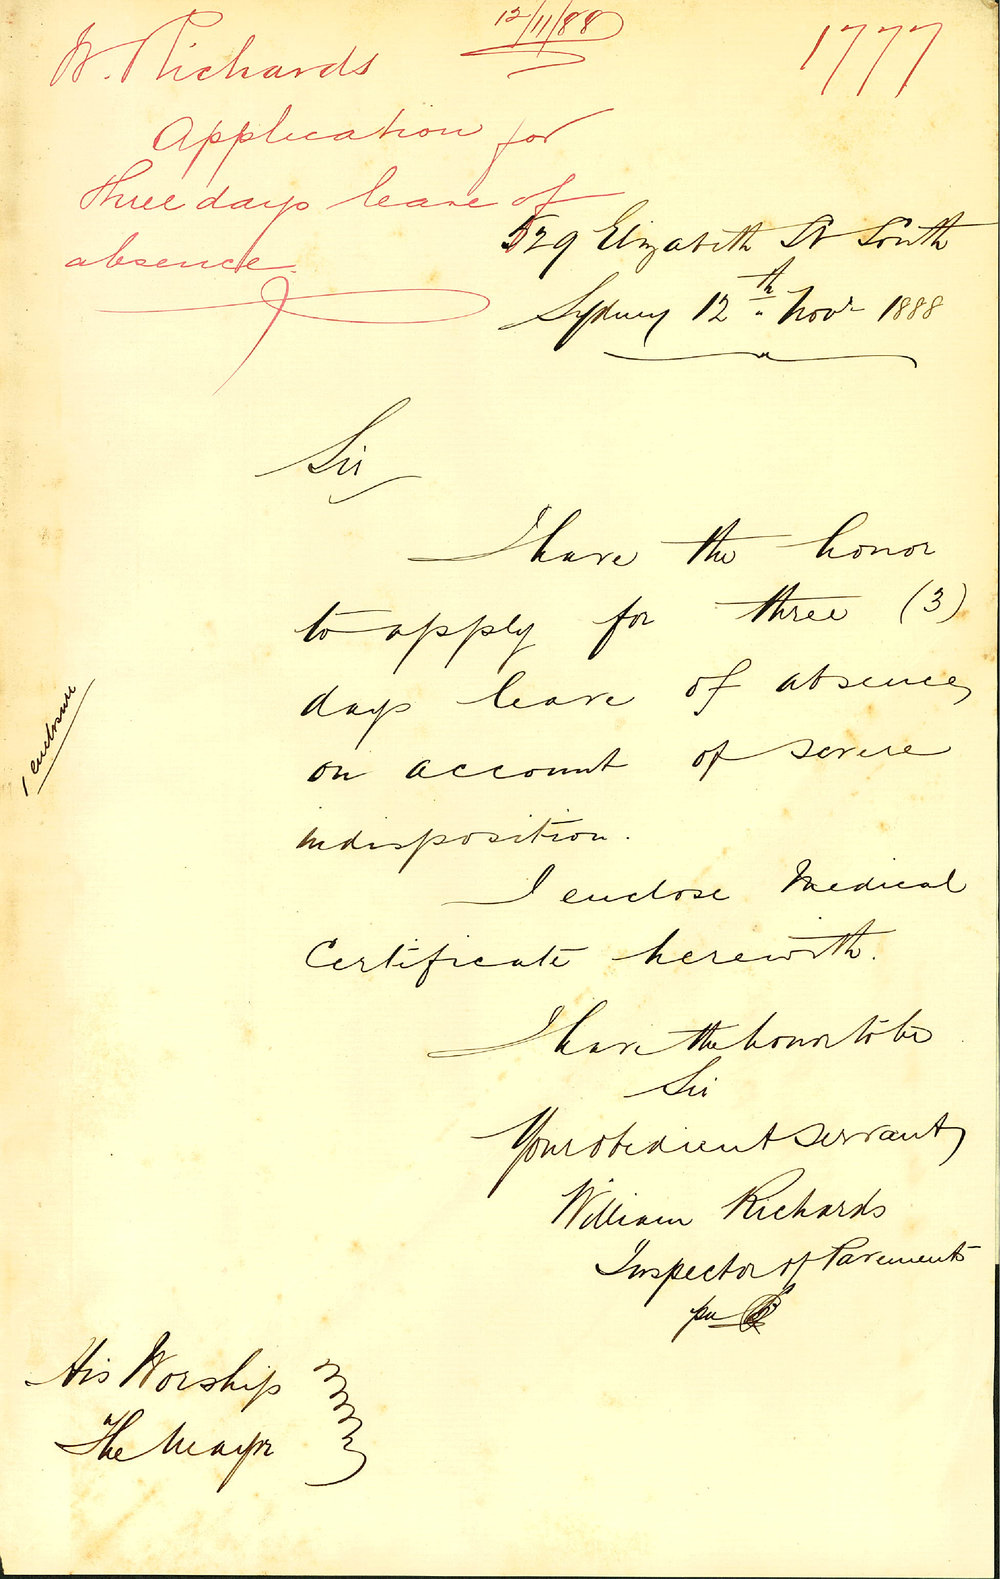 12/11/88
1777
W. Richards
Application for
three days leave of
absence.
529 Elizabeth St South
Sydney 12th Novr 1888
Sir
I have the honor
to apply for three (3)
days leave of absence,
on account of severe
indisposition.
I enclose Medical
Certificate herewith.
1 enclosure
I have the honor to be
Sir
Your obedient servant,
William Richards
Inspector of Pavements
His Worship
The Mayor